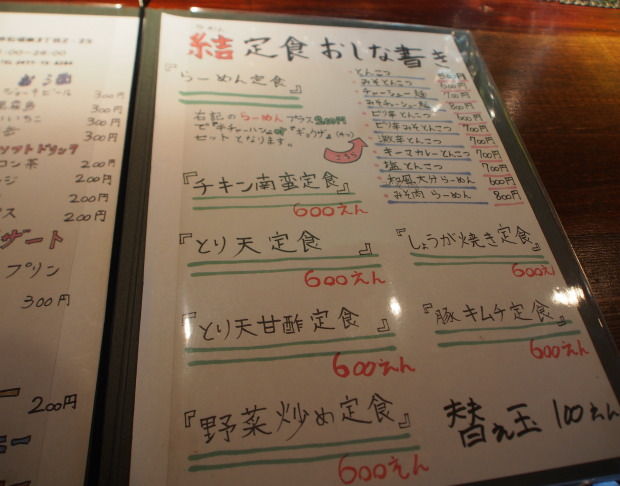 結 定食 おしな書き
『らーめん定食』
右記のらーめんプラス200円
で半チャーハンor『ギョウザ』(4ケ)
セットとなります。
とんこつ
みそとんこつ 600円
チャーシュー麺 700円
みそチャーシュー麺 800円
ピリ辛とんこつ 600円
ピリ辛みそとんこつ 700円
激辛とんこつ 700円
キーマカレーとんこつ 700円
塩とんこつ 700円
和風大分らーめん 600円
みそ肉らーめん 800円
『チキン南蛮定食』
600えん
『とり天定食』
600えん
『しょうが焼き定食』
600え
『とり天甘酢定食』
600えん
『豚キムチ定食』
600えん
『野菜炒め定食』
600えん
替え玉 100えん
300円
300円
いいちこ 300円
300円
ソフトドリンク
ロン茶 200円
ージ 200円
ス 200円
ザート
プリン
300円
200円